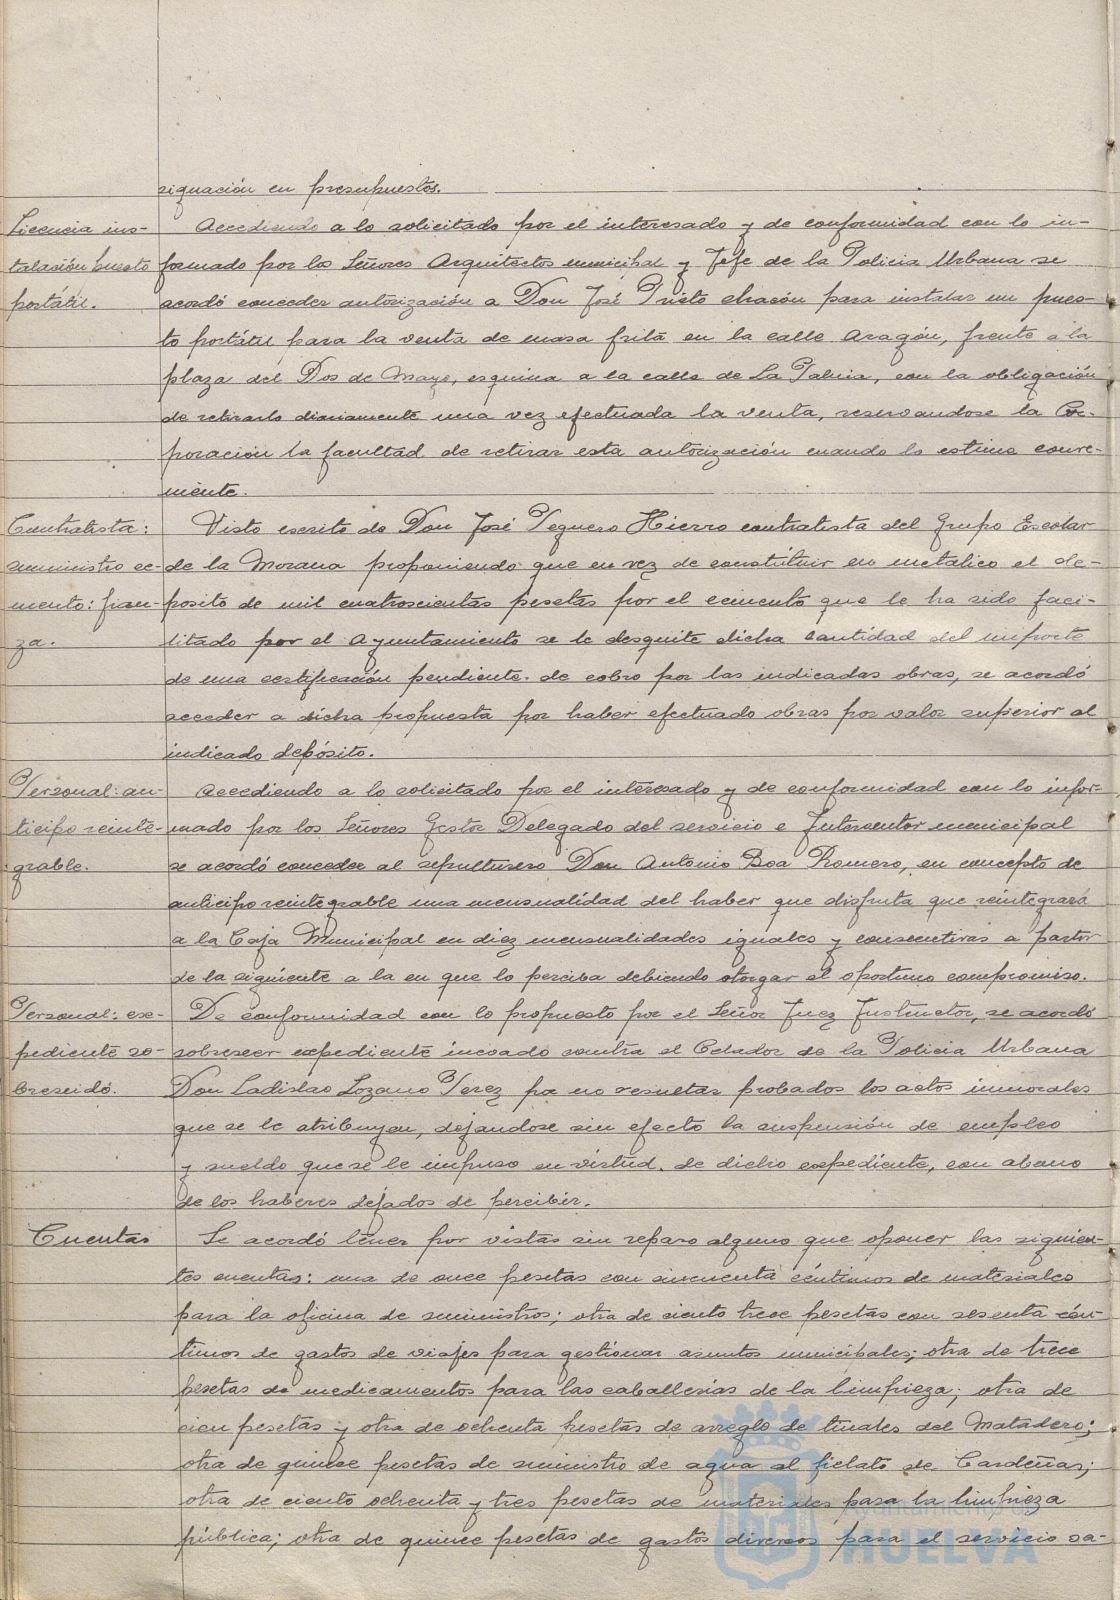 signación en presupuestos.
Licencia ins-
talación puesto
portátil.
Accediendo a lo solicitado por el interesado y de conformidad con lo in-
formado por los Señores Arquitectos municipal y Jefe de la Policia Urbana se
acordó conceder autorización a Don José Prieto Chacón para instalar un pues-
to portátil para la venta de masa frita en la calle Aragón, frente a la
plaza del Dos de Mayo, esquina a la calle de La Palma, con la obligación
de retirarlo diariamente una vez efectuada la venta, reservandose la Cor-
poración la facultad de retirar esta autorización cuando lo estime conve-
niente.
Contratista:
suministro ce-
mento: fian-
za.
Visto escrito de Don José Peguero Hierro contratista del Grupo Escolar
de la Morana proponiendo que en vez de constituir en metalico el de-
posito de mil cuatroscientas pesetas por el cemento que le ha sido faci-
litado por el Ayuntamiento se le desquite dicha cantidad del importe
de una certificación pendiente de cobro por las indicadas obras, se acordó
acceder a dicha propuesta por haber efectuado obras por valor superior al
indicado depósito.
Personal: an-
ticipo reinte-
grable.
Accediendo a lo solicitado por el interesado y de conformidad con lo infor-
mado por los Señores Gestor Delegado del servicio e Interventor municipal
se acordó conceder al sepulturero Don Antonio Boa Romero, en concepto de
anticipo reintegrable una mensualidad del haber que disfruta que reintegrará
a la Caja Municipal en diez mensualidades iguales y consecutivas a partir
de la siguiente a la en que lo perciba debiendo otorgar el oportuno compromiso.
Personal: ex-
pediente so-
breseido.
De conformidad con lo propuesto por el Señor Juez Instructor, se acordó
sobreseer expediente incoado contra el Celador de la Policia Urbana
Don Ladislao Lozano Perez por no resultar probados los actos inmorales
que se le atribuyen, dejandose sin efecto la suspensión de empleo
y sueldo que se le impuso en virtud de dicho expediente, con abono
de los haberes dejados de percibir.
Cuentas
Se acordó tener por vistas sin reparo alguno que oponer las siguien-
tes cuentas: una de once pesetas con cincuenta céntimos de materiales
para la oficina de suministros; otra de ciento trece pesetas con sesenta cén-
timos de gastos de viajes para gestionar asuntos municipales; otra de trece
pesetas de medicamentos para las caballerias de la limpieza; otra de
cien pesetas y otra de ochenta pesetas de arreglo de tinales del Matadero;
otra de quince pesetas de suministro de agua al fielato de Cardeñas;
otra de ciento ochenta y tres pesetas de materiales para la limpieza
pública; otra de quince pesetas de gastos diversos para el servicio sa-
Ayuntamiento de
HUELVA